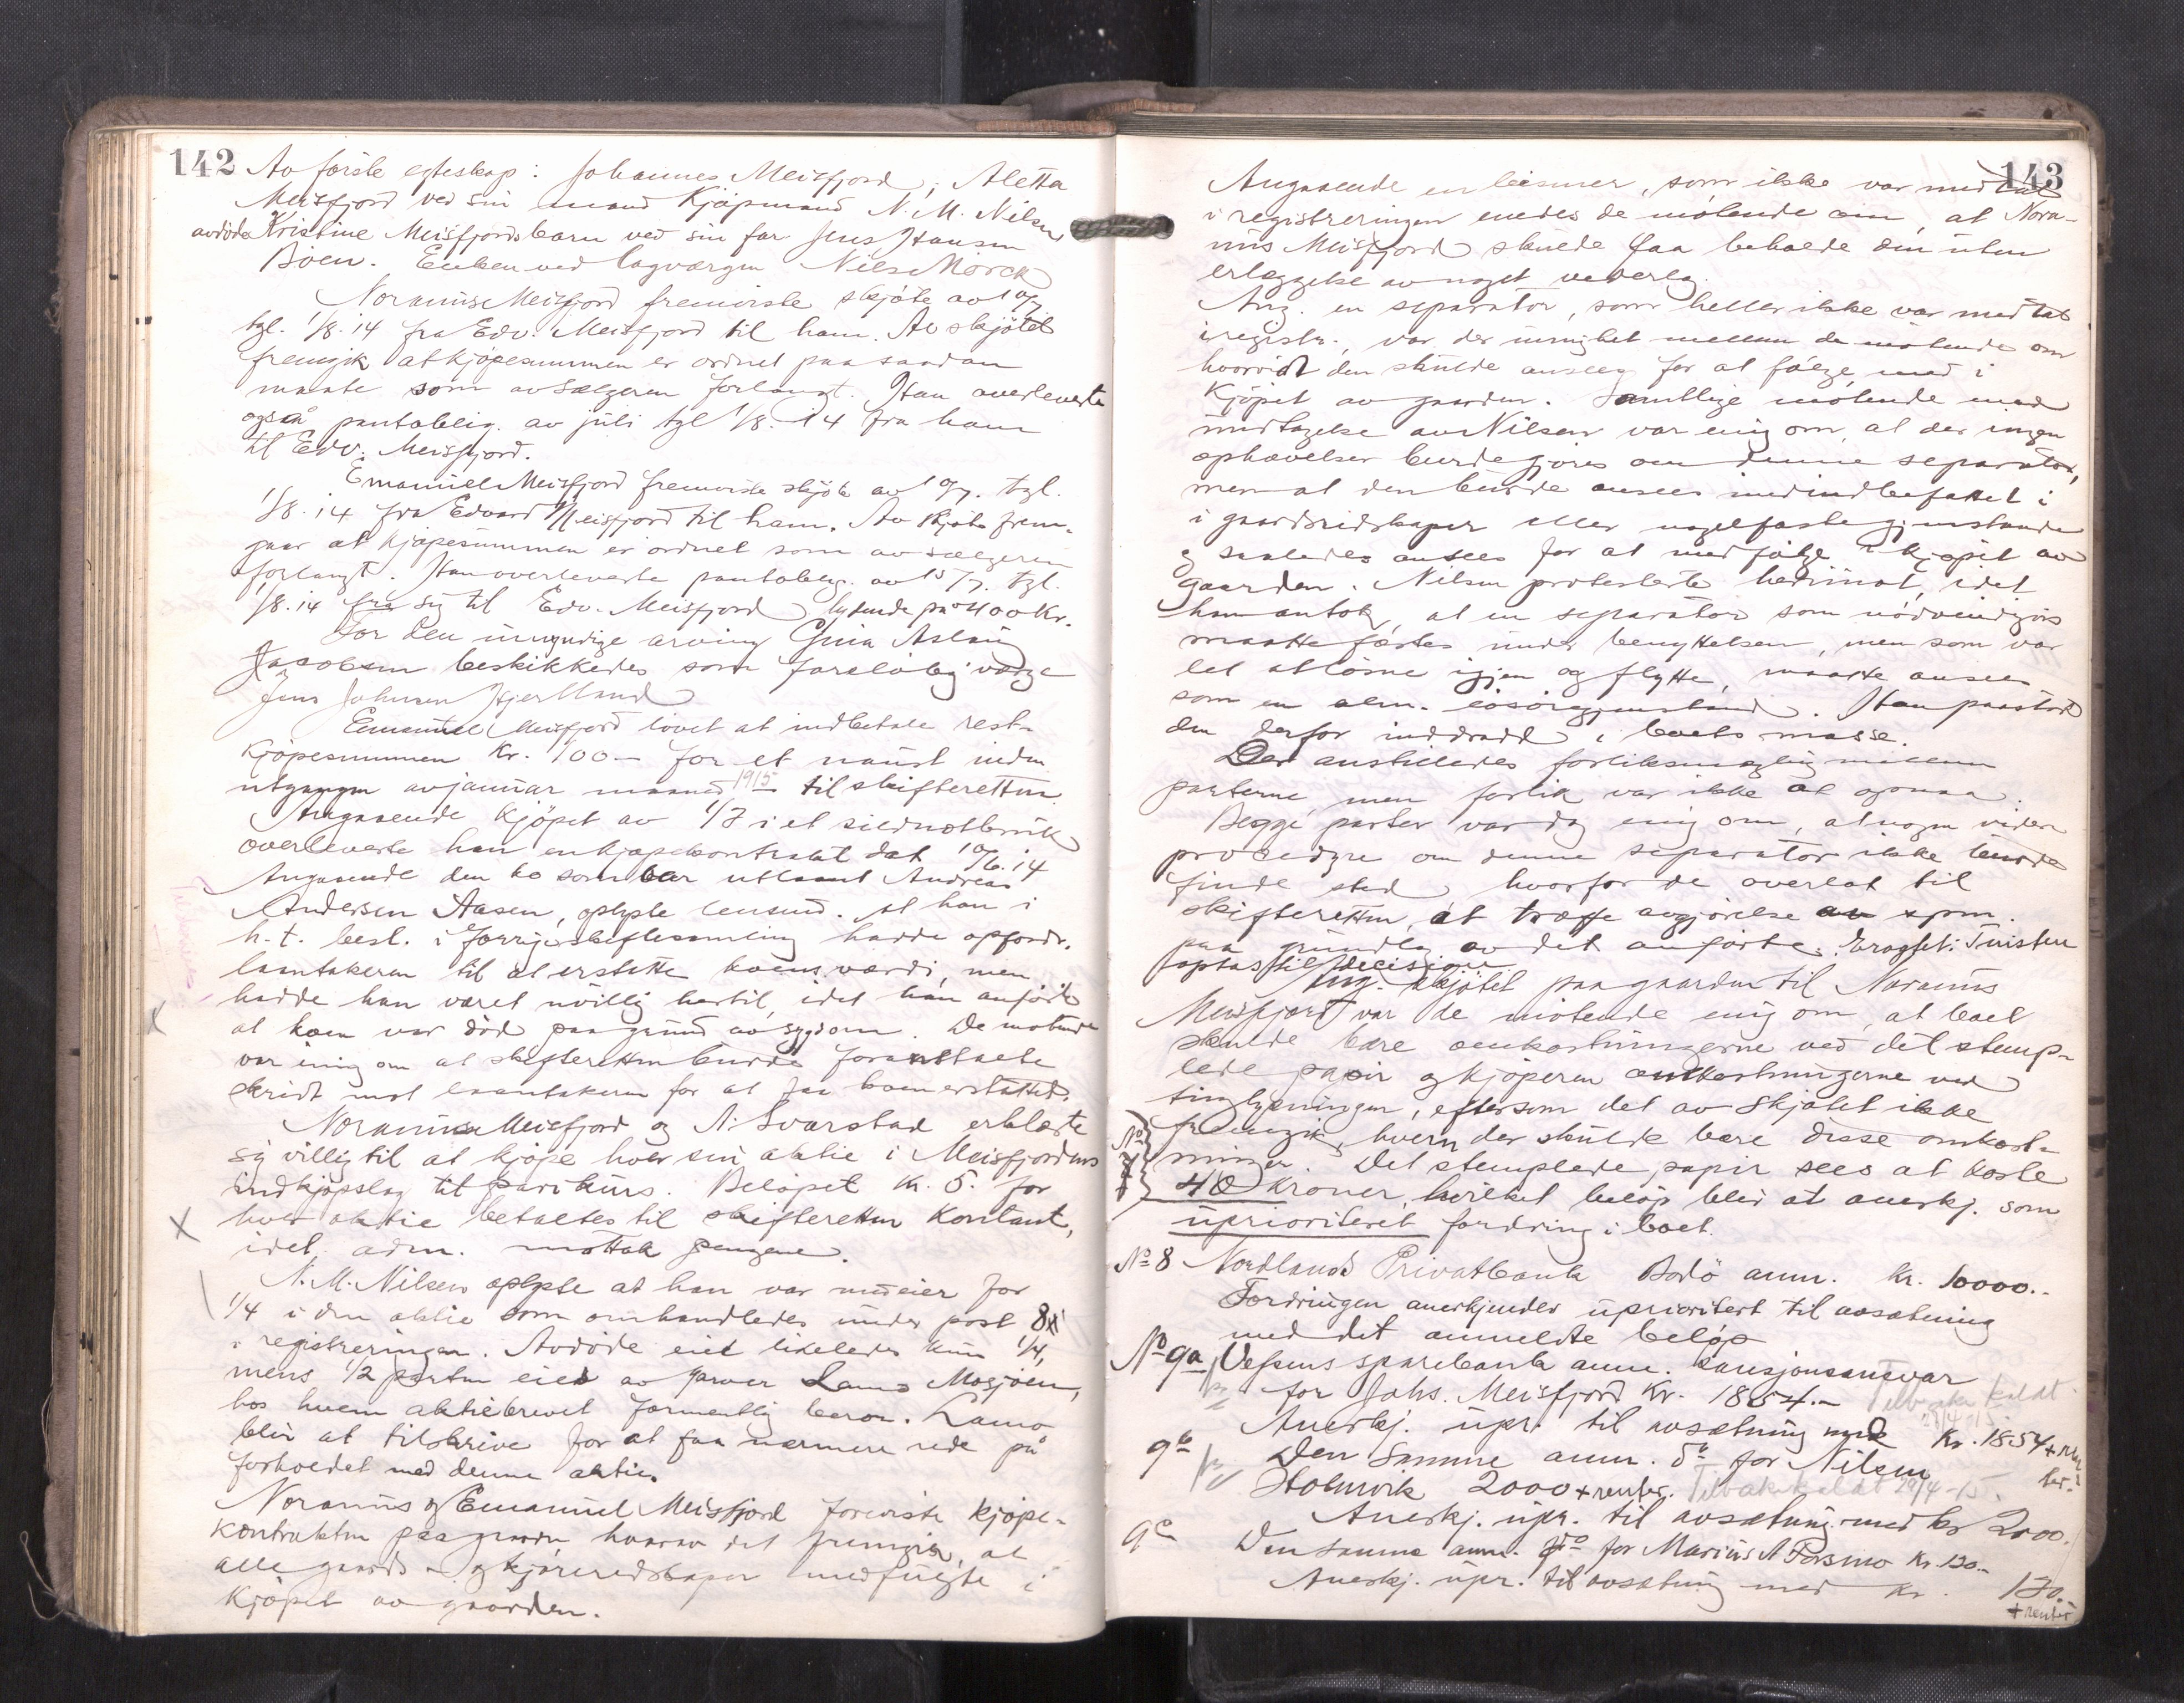 142
Av første egteskap: Johannes Meisfjord, Aletta
Meisfjord ved sin mand Kjøpmand N. M. Nilsen
avdöde Kristine Meisfjords barn ved sin far Jens Hansen
Böen. Enken ved lagværgen Nils Mörch
Noranius Meisfjord fremviste skjöte av 10/7
tgl. 1/8.14 fra Edv. Meisfjord til ham. Av skjötet
fremgik at kjöpesummen er ordnet paa saadan
maate som av sælgeren forlangt. Han overleverte
også pantoblig. av juli tgl 1/8.14 fra ham
til Edv. Meisfjord.
Emanuel Meisfjord fremviste skjöte av 10/7. tgl.
1/8.14 fra Edvard Meisfjord til ham. Av skjöte frem-
gaar at kjöpesummen er ordnet som av sælgeren
forlangt. Han overleverte pantoblig. av 15/7. tgl.
1/8.14 fra sig til Edv. Meisfjord lydende på 400 Kr.
For den umyndige arving Gina Aslaug
Jacobsen beskikkedes som foreløbig værge
Jens Johnsen Hjertland
Emanuel Meisfjord lovet at indbetale rest-
kjöpesummen Kr. 100- for et naust inden
utgangen av januar maaned 1915 til skifteretten.
Angaaende kjöpet av 1/7 i et sildnotbruk
overleverte han en kjøpekontrakt dat 10/6.14
Angaaende den ko som var utlaant Andreas
Andersen Aasen, oplyste lensmd. at han i
h.t. besl. i forrige skiftesamling hadde opfordr.
laantakeren til at erstatte koens værdi, men
hadde han været uvillig hertil, idet han anförte
at koen var död paa grund av sygdom. De mötende
var enig om at skifteretten burde foranstalte
skridt mot laantakeren for at faa koen erstattet.
Noranius Meisfjord og N. Svarstad erklærte
sig villig til at kjöpe hver sin aktie i Meisfjordens
indkjöpslag til parikurs. Belöpet kr. 5. for
hver aktie betaltes til skifteretten kontant,
idet adm. mottok pengene.
N. M. Nilsen oplyste at han var medeier for
1/4 i den aktie som omhandledes under post 8
i registreringen. Avdöde eiet likeledes kun 1/4,
mens 1/2 parten eies av garver Mosjøen,
hos hvem aktiebrevet formentlig beror.
blir at tilskrive for at faa nærmere rede på
forholdet med denne aktie.
Noranius og Emanuel Meisfjord foreviste kjöpe-
kontrakten paa gaarden hvorav det fremgik, at
alle gaards- og kjøreredskaper medfulgte i
kjöpet av gaarden.
143
Angaaende en , som ikke var medtat
i registreringen enedes de mötende om, at Nora-
nius Meisfjord skulde faa beholde den uten
erlæggelse av noget vederlag.
Ang. en separator, som heller ikke var medtat
i registr., var der uenighet mellem de mötende om
hvorvidt den skulde ansees for at fölge med i
kjöpet av gaarden. Samtlige mötende med
undtagelse av Nilsen var enig om, at der ingen
ophævelser burde gjöres om denne separator,
men at den burde ansees medindbefattet i
i gaardsredskaper eller nagelfaste gjenstande
og saaledes ansees for at medfölge i kjöpet av
gaarden. Nilsen protesterte herimot, idet
han antok, at en separator som nödvendigvis
maatte fæstes under benyttelsen, men som var
let at lösne igjen og flytte, maatte ansees
som en alm. lösöregjenstand. Han paastod
den derfor inddradd i boets masse.
Der anstilledes forliksmægling mellem
parterne men forlik var ikke at opnaa.
Begge parter var dog enig om, at nogen videre
procedyre om denne separator ikke burde
finde sted hvorfor de overlot til
skifteretten at træffe avgjörelse av spm.
paa grundlag av det anførte. Eragtet: Tvisten
optas til decision
Ang. skjötet paa gaarden til Noranius
Meisfjord var de mötende enig om, at boet
skulde bære omkostningerne ved det stemp-
lede papir og kjöperen omkostningerne ved
tinglysningen, eftersom det av skjötet ikke
fremgik, hvem der skulde bære disse omkost-
ninger. Det stemplede papir sees at koste
No 7
40 kroner, hvilket belöp blir at anerkj. som
uprioritert fordring i boet.
No 8 Nordlands Privatbank Bodö anm. Kr. 10000.-
Fordringen anerkjendes uprioritert til avsætning
med det anmeldte belöp
No 9a Vefsens sparebank anm. kausjonsansvar
for Johs. Meisfjord Kr. 1854.- Tilbakekaldt
Anerkj. upr. til avsætning med Kr. 1854 + renter
9b Den samme anm. do for Nilsen
Holmvik 2000 + renter. Tilbakekaldt 29/4-15.
Anerkj. upr. til avsætning med kr 2000.
9c Den samme anm. do for Marius A Forsmo Kr. 120.-
Anerkj. upr. til avsætning med Kr. 120.
+ renter